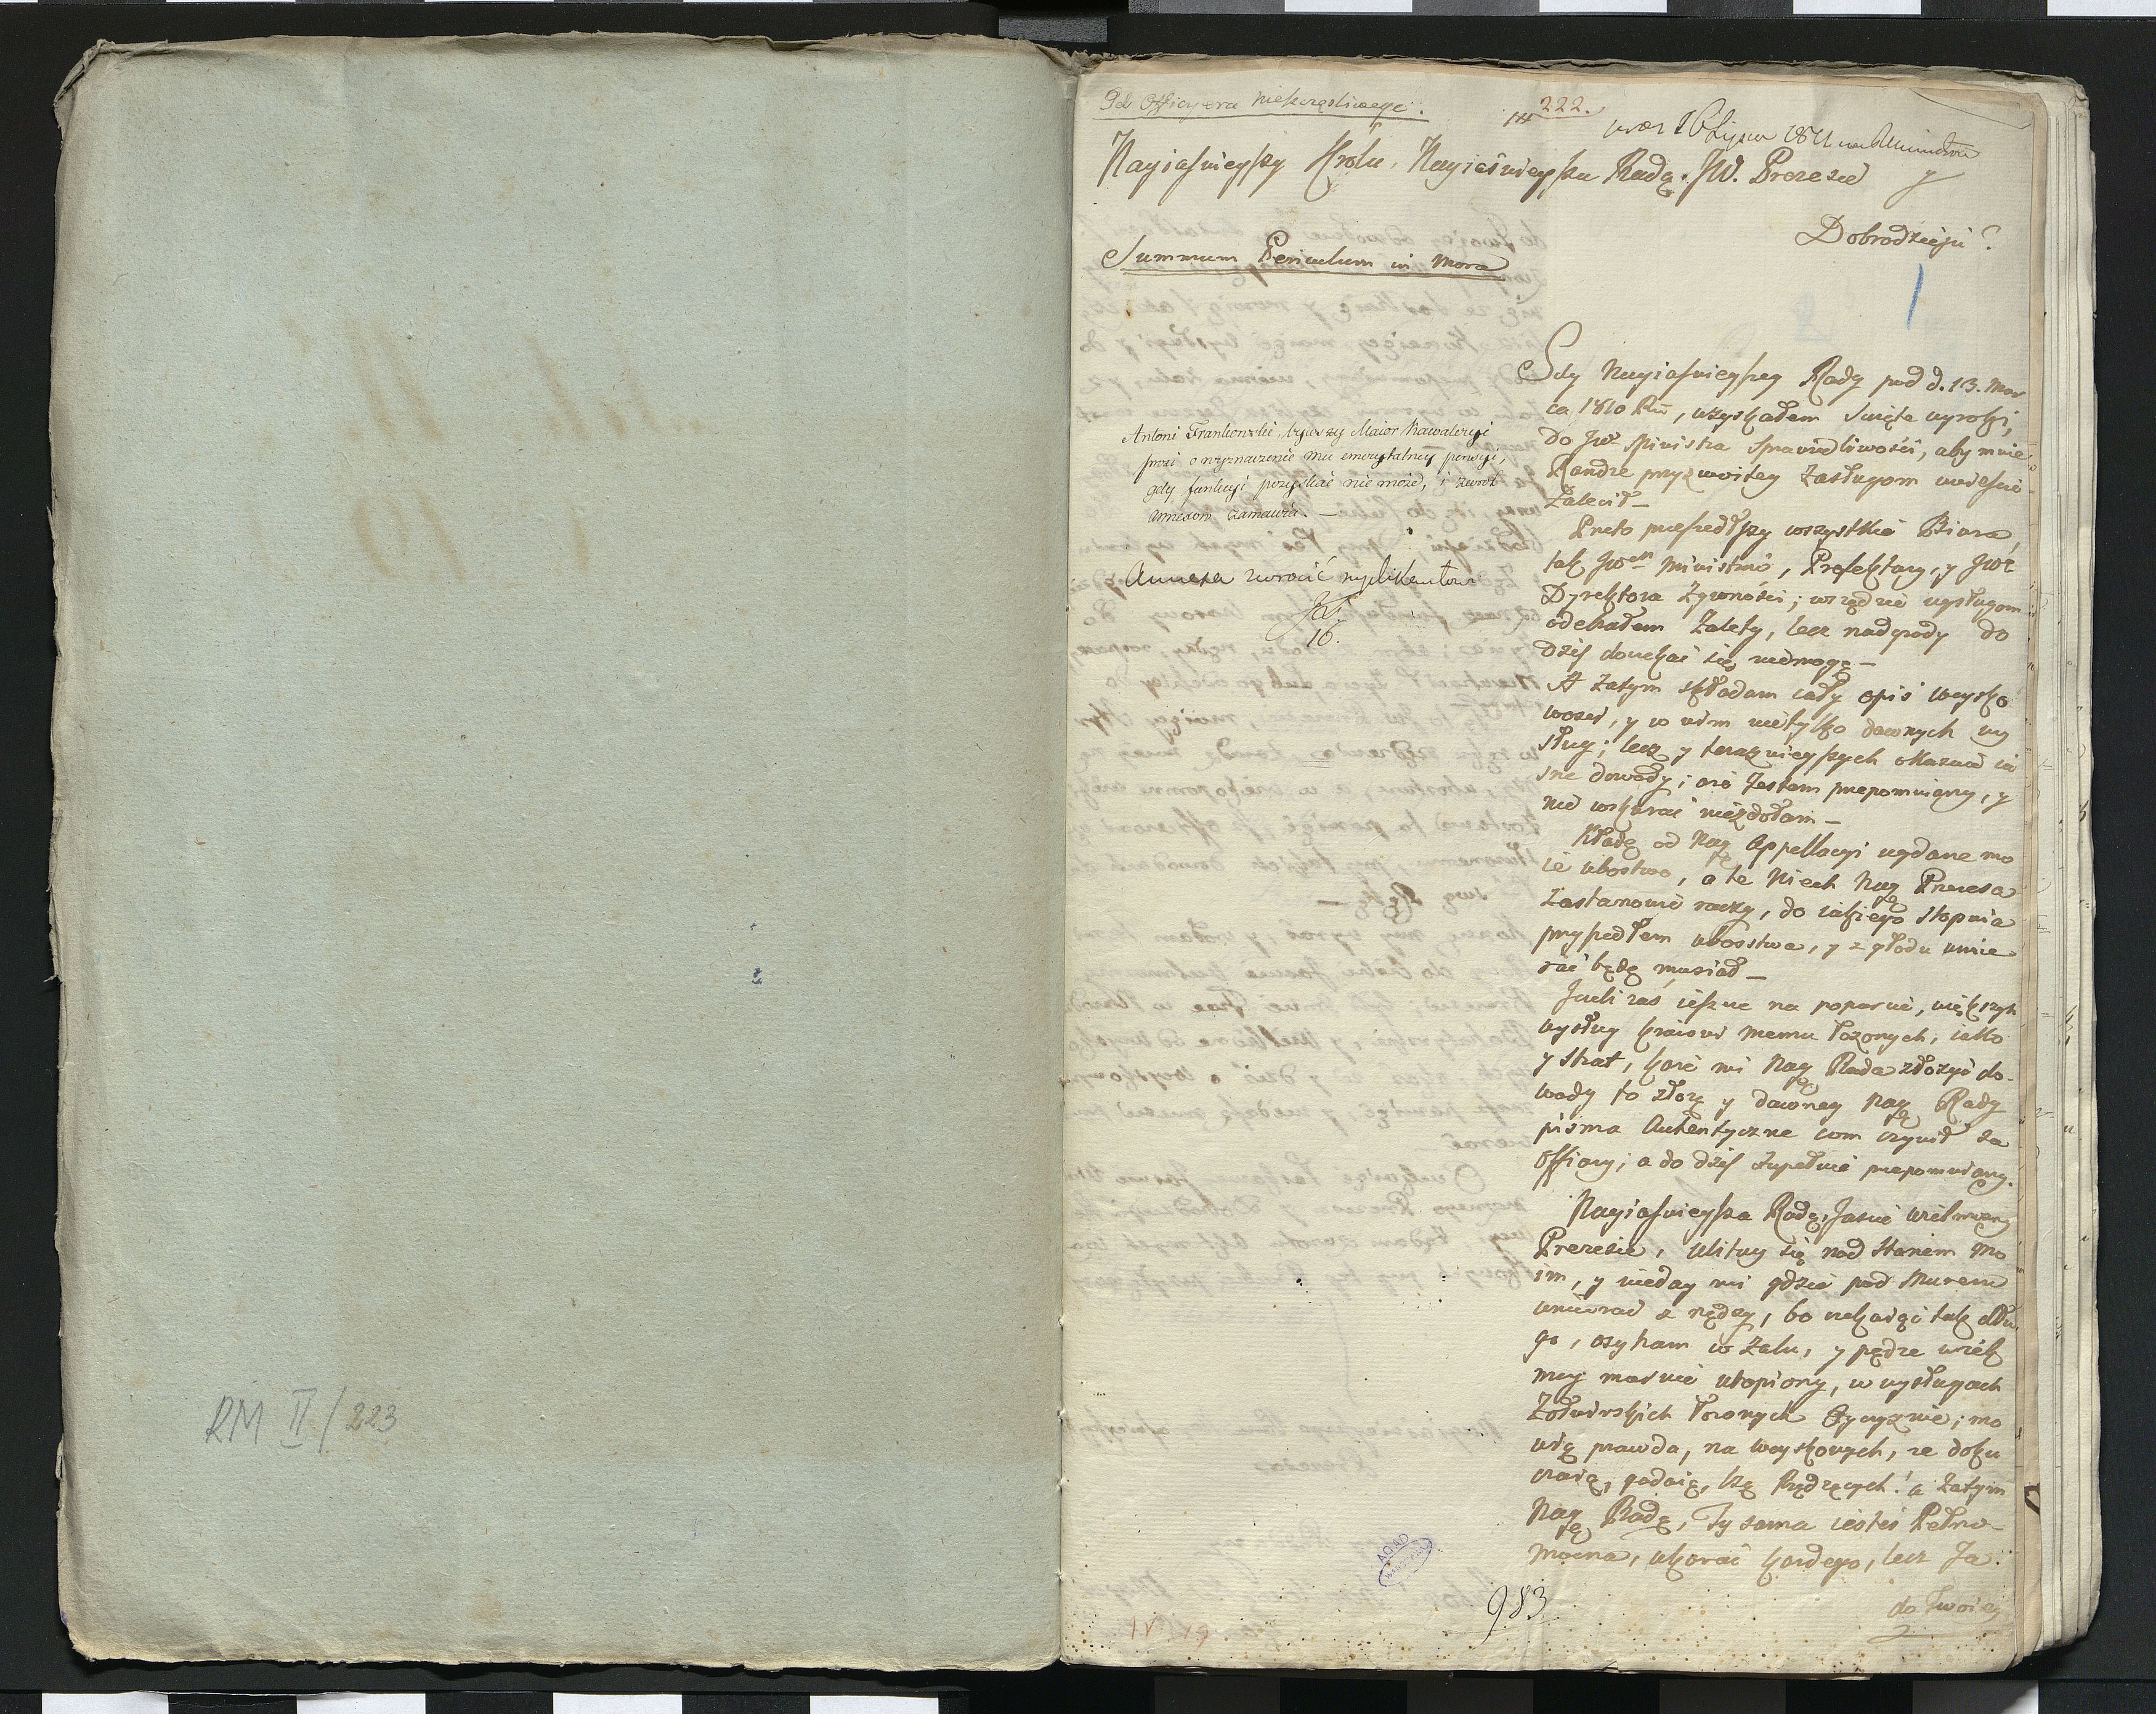 RM II/223
Od Officyera nieszczęśliwego.
222.
16 Lipca 1811
Nayiaśnieyszy Królu, Nayiaśnieysza Rado. JW. Prezesie y
Dobrodzieju!
Summum Periculum in mora
1
Antoni Frankowski, bywszy Maior Kawaleryi
prosi o wyznaczenie mu emerytalney pensyi,
gdy funkcyi pozyskać nie może, i zwrot
annexow zamawia. —
Annexa zwrocić suplikantowi
16.
Gdy Nayiaśnieyszey Rady pod d. 13. Mar
ca 1810 Ru, uzyskałem święte wyroki,
do JW. Ministra Sprawiedliwości, aby mnie
Randze przyzwoitey zasługom
zalecił —
Przeto przeszedłszy wszystkie Biura,
tak JWch Ministrów, Prefektury, y JWo
Dyrektora Żywności; wszędzie wysługom
odebrałem zalety, lecz nadgrody do
dziś doczekać się niemogę —
A zatym składam cały opis woysko
wości, y w nim nietylko dawnych wy
sług; lecz y teraznieyszych okazuie ia
sne dowody; oto jestem przepomniany, y
nic wskurać niezdołam —
Kładę od Nay Appellacyi wydane mo
ie ubostwo, a te niech Nay Prezesa
zastanowić raczy, do iakiego stopnia
przyszedłem ubosstwa, y z głodu umie
rać będę musiał —
Jeśli zaś ieszcze na poparcie, większych
wysług kraiowi memu łożonych, iako
y strat, każe mi Nay Rada złożyć do-
wody to złożę y dawney Nay Rady
pisma Autentyczne com czynił za
offiary; a do dziś zupełnie przepomniany.
Nayiaśnieysza Rado, Jaśnie Wielmożny
Prezesie, ulituy się nad stanem mo
im, y nieday mi gdzie pod murem
umierać z nędzy, bo czekaiąc tak dłu
go, usycham w żalu, y pędzę wiek
móy marnie utopiony, w wysługach
Żołnierskich łożonych Oyczyznie; mo
wią prawda, na woyskowych, że doku
czaią, gadaią, są! a zatym
Nay Rado, Ty sama iesteś Pełno-
mocna, ukarać każdego, lecz Ja
do Twoiey
983
AGAD
WARSZAWA